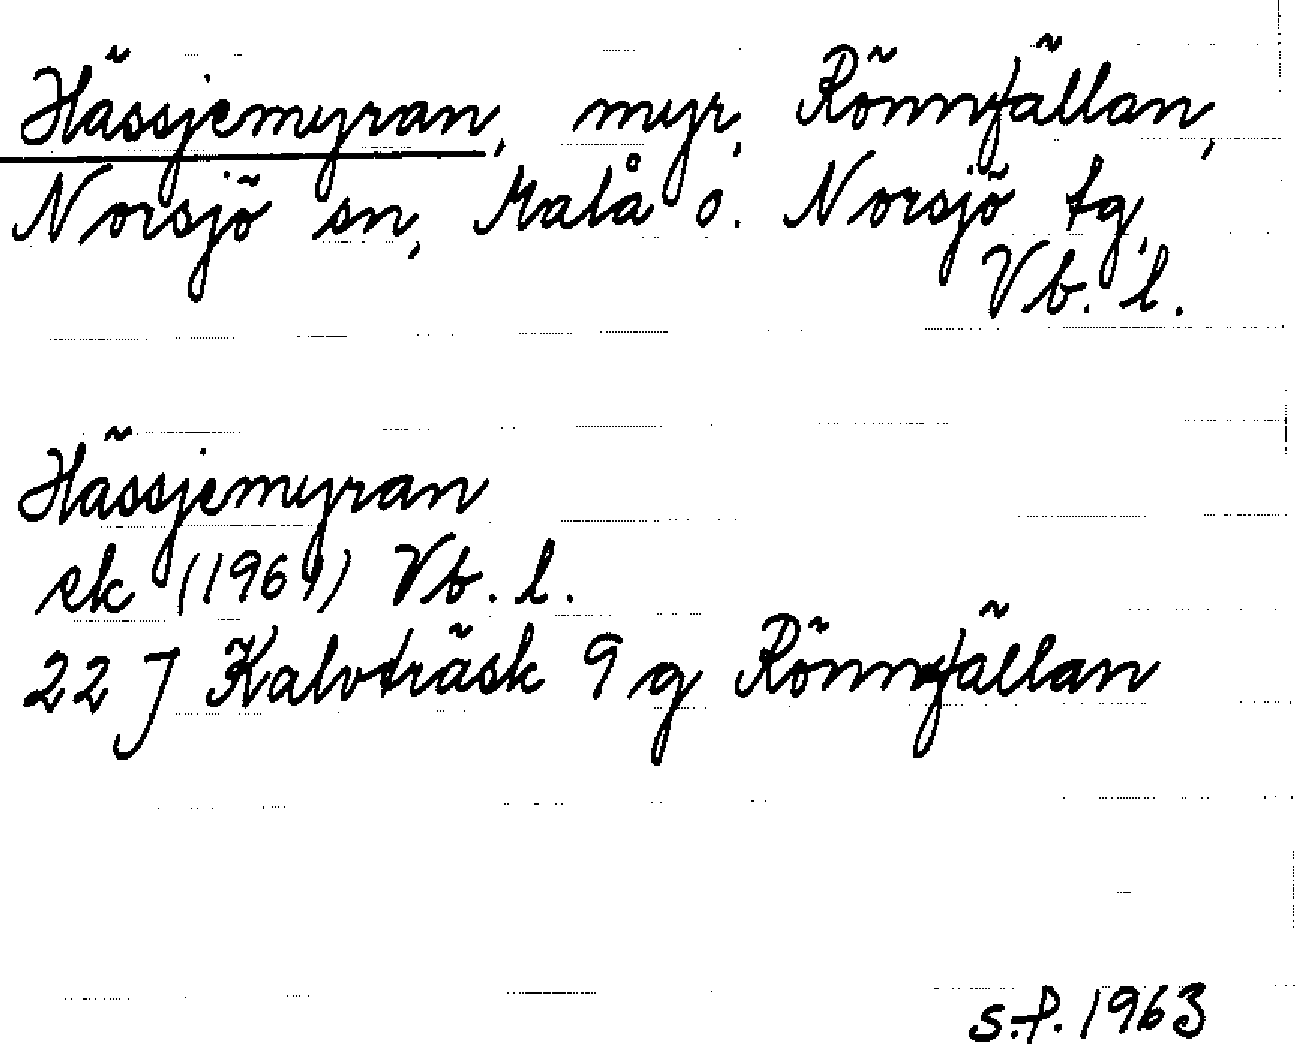 Hässjemyran, myr, Rönnfällan,
Norsjö sn, Malå o. Norsjö tg,
Vb. l.
Hässjemyran
ek (1961) Vb. l.
22 J Kalvträsk 9 g Rönnfällan
S.F. 1963